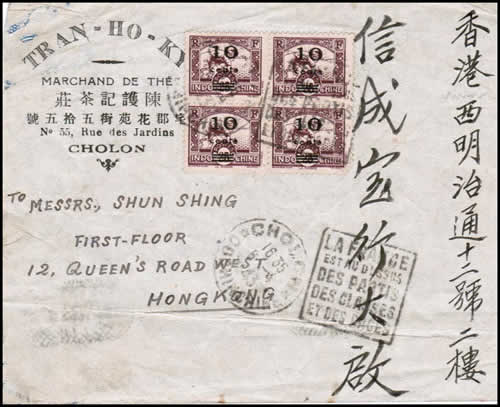 TRAN-HO-KY
MARCHAND DE THÉ
陳護記茶莊
花苑街五拾五號
Nº 55, Rue des Jardins
CHOLON
RF
10
cents
INDOCHINE
RF
10
cents
INDOCHINE
RF
10
cents
INDOCHINE
RF
10
cents
INDOCHINE
香港西明治通十二號二樓
信成宝行大啟
TO MESSRS., SHUN SHING
FIRST-FLOOR
12, QUEEN'S ROAD WEST
HONGKONG
CHOLON
16 35
LA FRANCE
EST AU DESSUS
DES PARTIS
DES CLASSES
ET DES RACES